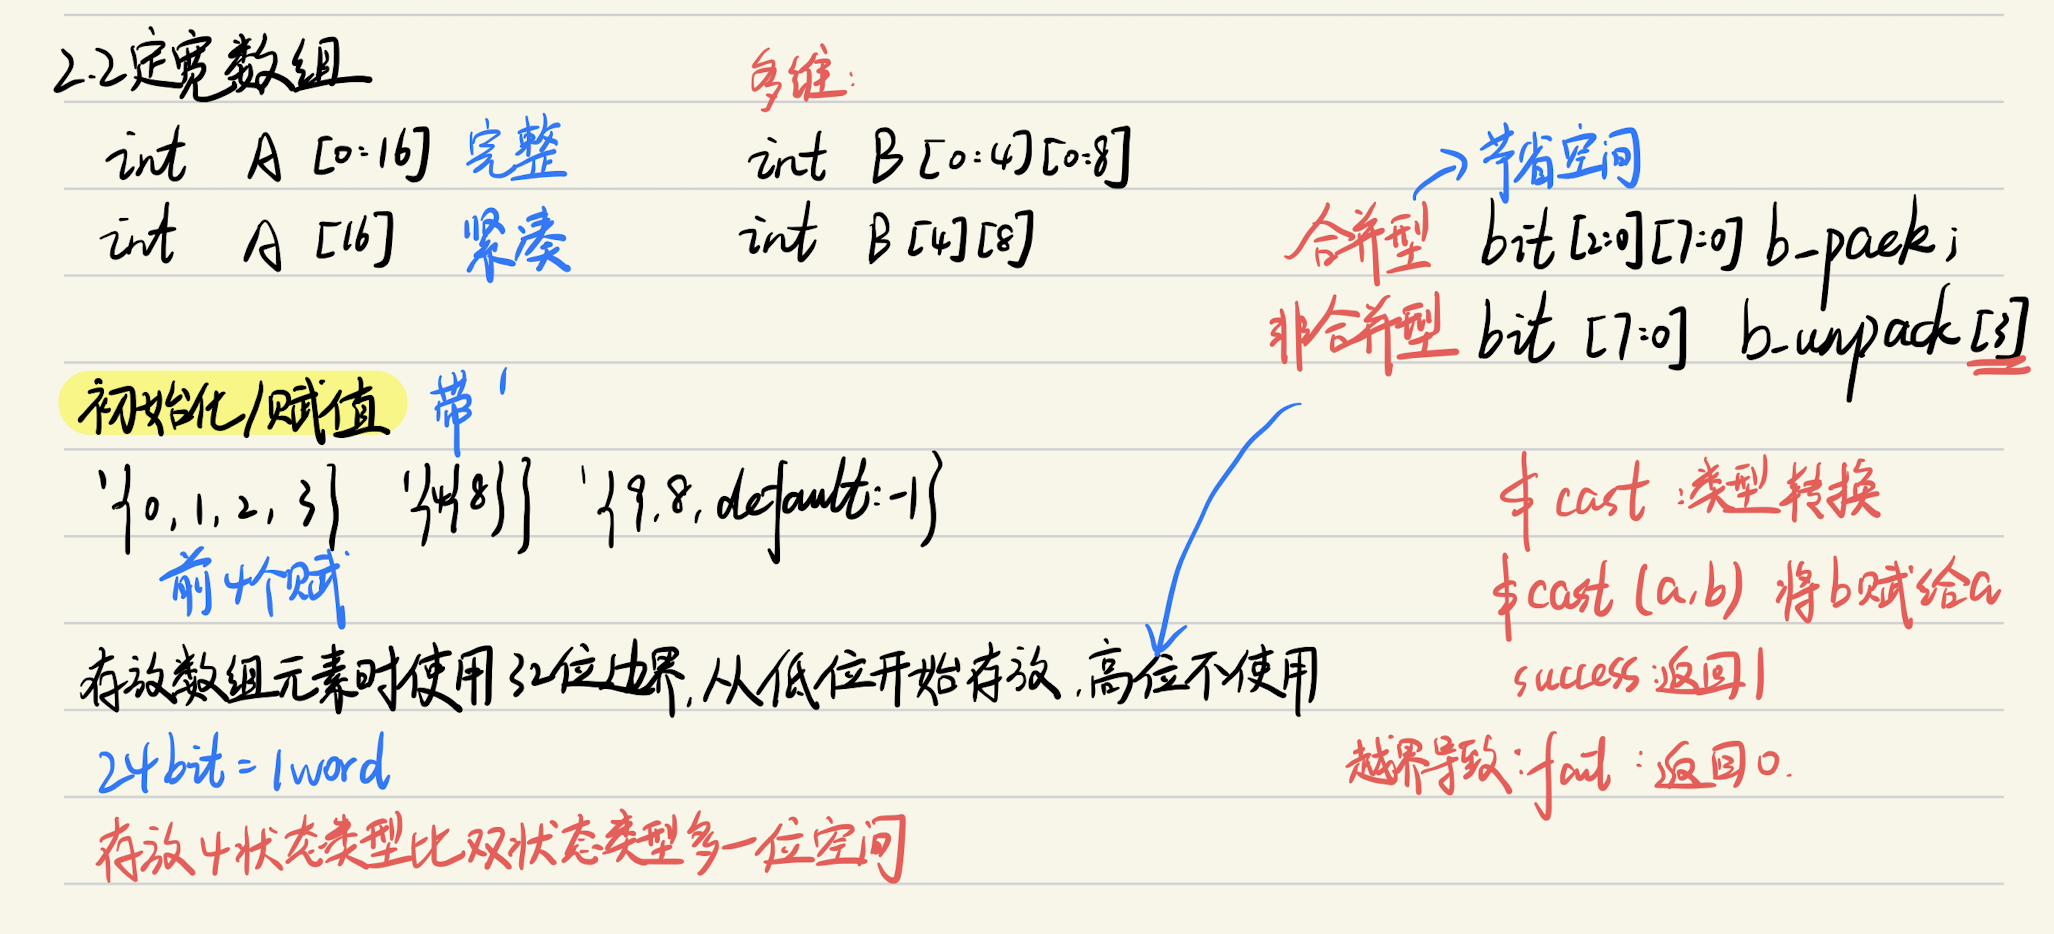 2.2定宽数组
多维:
int A [0:16] 完整
int B [0:4][0:8]
→节省空间
int A [16] 紧凑
int B [4][8]
合并型 bit [2:0][7:0] b_pack;
非合并型 bit [7:0] b_unpack [3]
初始化/赋值 带 '
'{0,1,2,3} '{4{8}} '{9,8,default:-1}
前4个赋
$cast :类型转换
$cast (a,b) 将b赋给a
存放数组元素时使用32位边界,从低位开始存放,高位不使用
success:返回1
24bit=1word
越界导致:fail:返回0.
存放4状态类型比双状态类型多一位空间